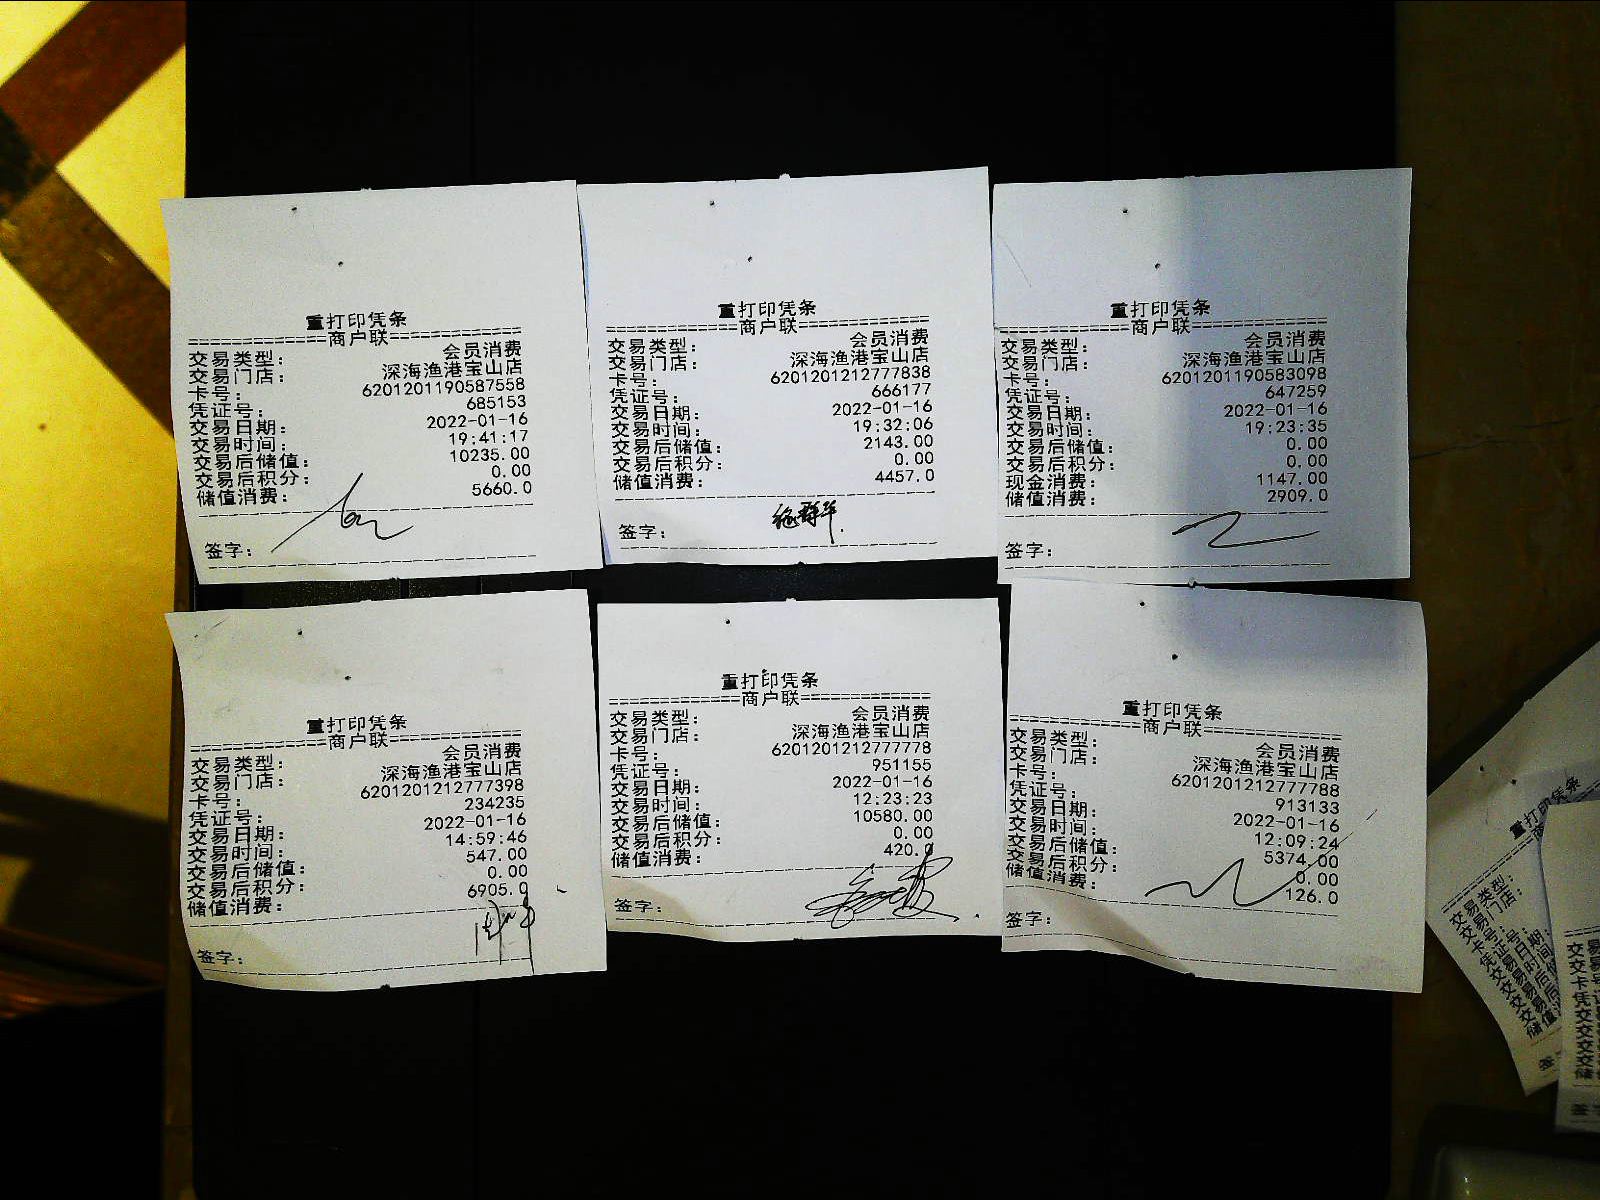 重打印凭条
==============商户联==============
交易类型： 会员消费
交易门店： 深海渔港宝山店
卡号： 6201201190587558
凭证号： 685153
交易日期： 2022-01-16
交易时间： 19:41:17
交易后储值： 10235.00
交易后积分： 0.00
储值消费： 5660.0
签字：
重打印凭条
==============商户联==============
交易类型： 会员消费
交易门店： 深海渔港宝山店
卡号： 6201201212777838
凭证号： 666177
交易日期： 2022-01-16
交易时间： 19:32:06
交易后储值： 2143.00
交易后积分： 0.00
储值消费： 4457.0
签字：
重打印凭条
==============商户联==============
交易类型： 会员消费
交易门店： 深海渔港宝山店
卡号： 6201201190583098
凭证号： 647259
交易日期： 2022-01-16
交易时间： 19:23:35
交易后储值： 0.00
交易后积分： 0.00
现金消费： 1147.00
储值消费： 2909.0
签字：
重打印凭条
==============商户联==============
交易类型： 会员消费
交易门店： 深海渔港宝山店
卡号： 6201201212777398
凭证号： 234235
交易日期： 2022-01-16
交易时间： 14:59:46
交易后储值： 547.00
交易后积分： 0.00
储值消费： 6905.0
签字：
重打印凭条
==============商户联==============
交易类型： 会员消费
交易门店： 深海渔港宝山店
卡号： 6201201212777778
凭证号： 951155
交易日期： 2022-01-16
交易时间： 12:23:23
交易后储值： 10580.00
交易后积分： 0.00
储值消费： 420.0
签字：
重打印凭条
==============商户联==============
交易类型： 会员消费
交易门店： 深海渔港宝山店
卡号： 6201201212777788
凭证号： 913133
交易日期： 2022-01-16
交易时间： 12:09:24
交易后储值： 5374.00
交易后积分： 0.00
储值消费： 126.0
签字：
重打印凭条
交易类型：
交易门店：